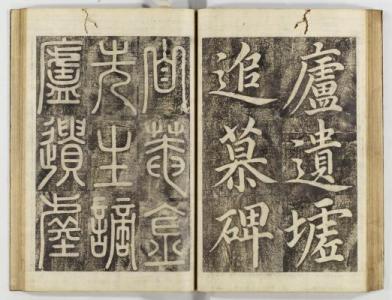 廬遺墟
追慕碑
菴金
先生謫
廬遺墟